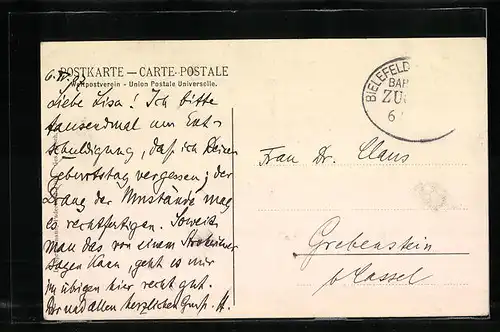 POSTKARTE — CARTE-POSTALE
Weltpostverein - Union Postale Universelle.
Liebe Lisa! Ich bitte
tausendmal um Ent-
schuldigung, daß ich Deinen
Geburtstag vergessen; der
Drang der Umstände mag
es rechtfertigen. Soweit
man das von einem
sagen kann, geht es mir
im übigen hier recht gut.
Dir und allen herzlichen Gruß. A.
BIELEFELD
BAH
ZUG
6
Frau Dr. Claus
Grebenstein
b/Cassel